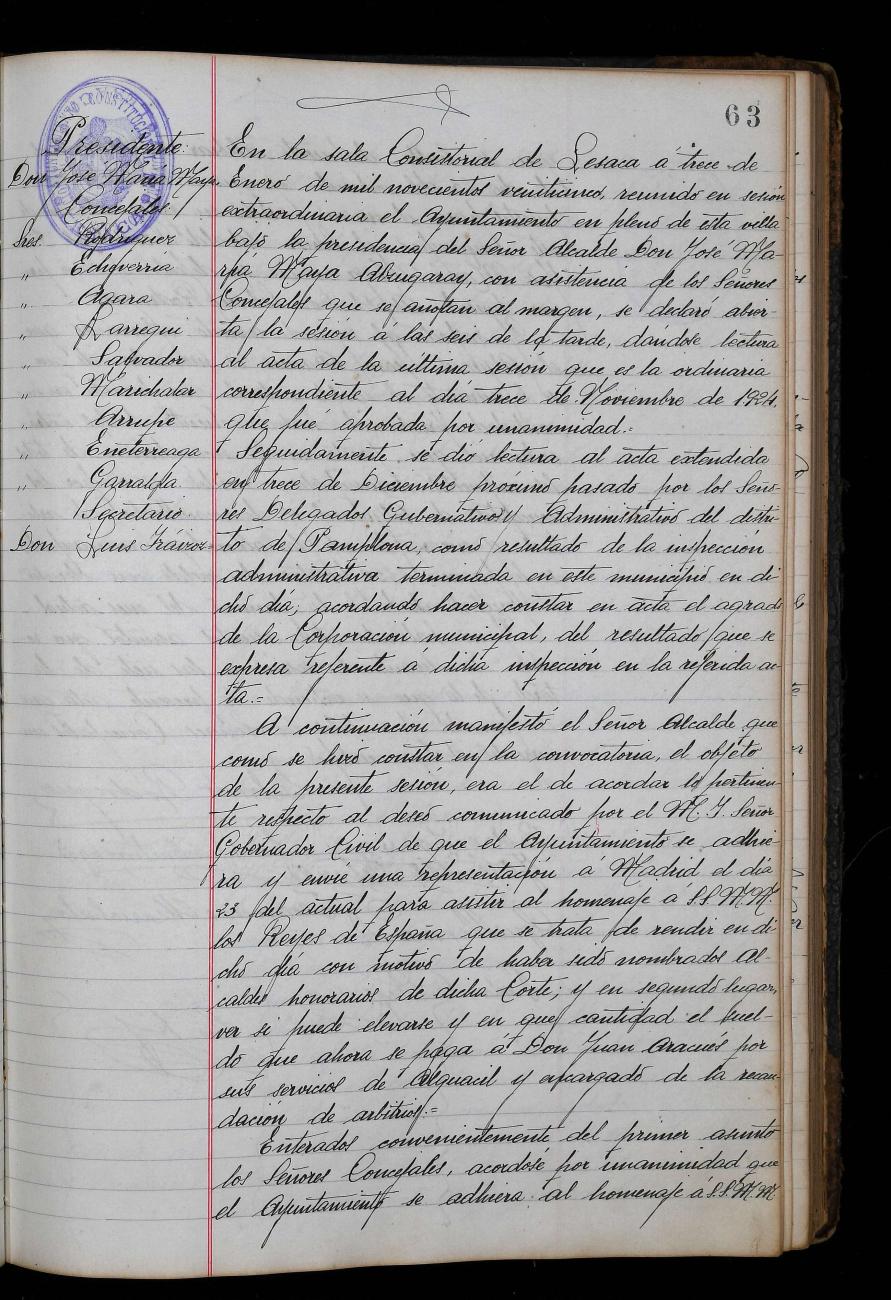 63
Presidente:
Don José María Maya
Concejales
Sres. Rodriguez
" Echeverria
" Agara
" Larregui
" Salvador
" Marichalar
" Arrupe
" Eneterreaga
" Garralda
Secretario
Don Luis Iráizoz
En la sala Consistorial de Lesaca á trece de
Enero de mil novecientos veinticinco, reunido en sesión
extraordinaria el Ayuntamiento en pleno de esta villa
bajo la presidencia del Señor Alcalde Don José Ma-
ría Maya Abugaray, con asistencia de los Señores
Concejales que se anotan al margen, se declaró abier-
ta la sesion á las seis de la tarde, dandose lectura
al acta de la ultima sesión que es la ordinaria
correspondiente al dia trece de Noviembre de 1924,
que fué aprobada por unanimidad.=
Seguidamente se dió lectura al acta extendida
en trece de Diciembre proximo pasado por los Seño-
res Delegados Gubernativo y Administrativo del distri-
to de Pamplona, como resultado de la inspección
administrativa terminada en este municipio en di-
cho dia; acordando hacer constar en acta el agrado
de la Corporación municipal, del resultado que se
expresa referente á dicha inspección en la referida ac-
ta.=
A continuación manifestó el Señor Alcalde que
como se hizo constar en la convocatoria, el objeto
de la presente sesión, era el de acordar lo pertinen-
te respecto al deseo comunicado por el M. I. Señor
Gobernador Civil de que el Ayuntamiento se adhie-
ra y envie una representación á Madrid el dia
23 del actual para asistir al homenaje á S.S.M.M.
los Reyes de España que se trata de rendir en di-
cho dia con motivo de haber sido nombrados Al-
caldes honorarios de dicha Corte; y en segundo lugar,
ver si puede elevarse y en que cantidad el suel-
do que ahora se paga á Don Juan Aracués por
sus servicios de Alguacil y encargado de la recau-
dación de arbitrios.=
Enterados convenientemente del primer asunto
los Señores Concejales, acordose por unanimidad que
el Ayuntamiento se adhiera al homenaje á S.S.M.M